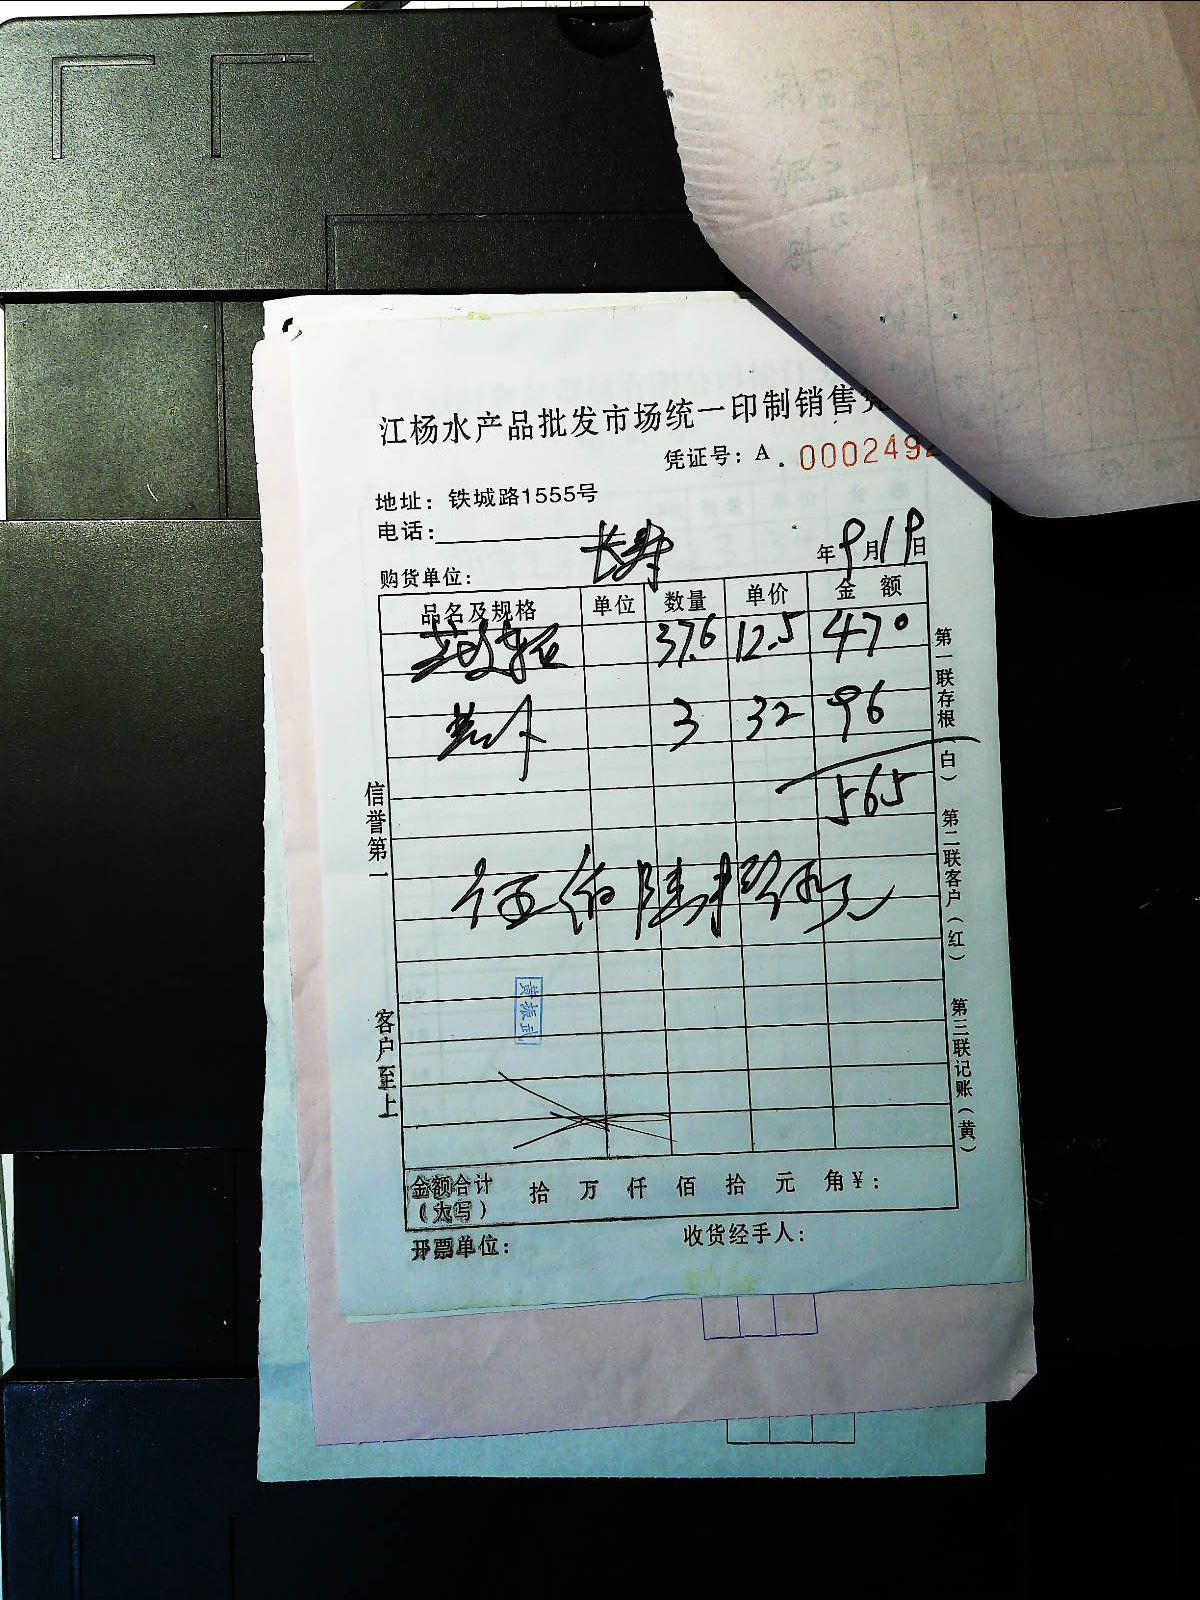 江杨水产品批发市场统一印制销售
凭证号: A. 0002492
地址: 铁城路1555号
电话:
购货单位: 长寿
年9月19日
品名及规格 单位 数量 单价 金额
37.6 12.5 470
3 32 96
565
伍佰陆拾伍元
信誉第一
客户至上
黄振武
第一联存根(白)
第二联客户(红)
第三联记账(黄)
金额合计(大写) 拾 万 仟 佰 拾 元 角 ¥:
开票单位: 收货经手人: